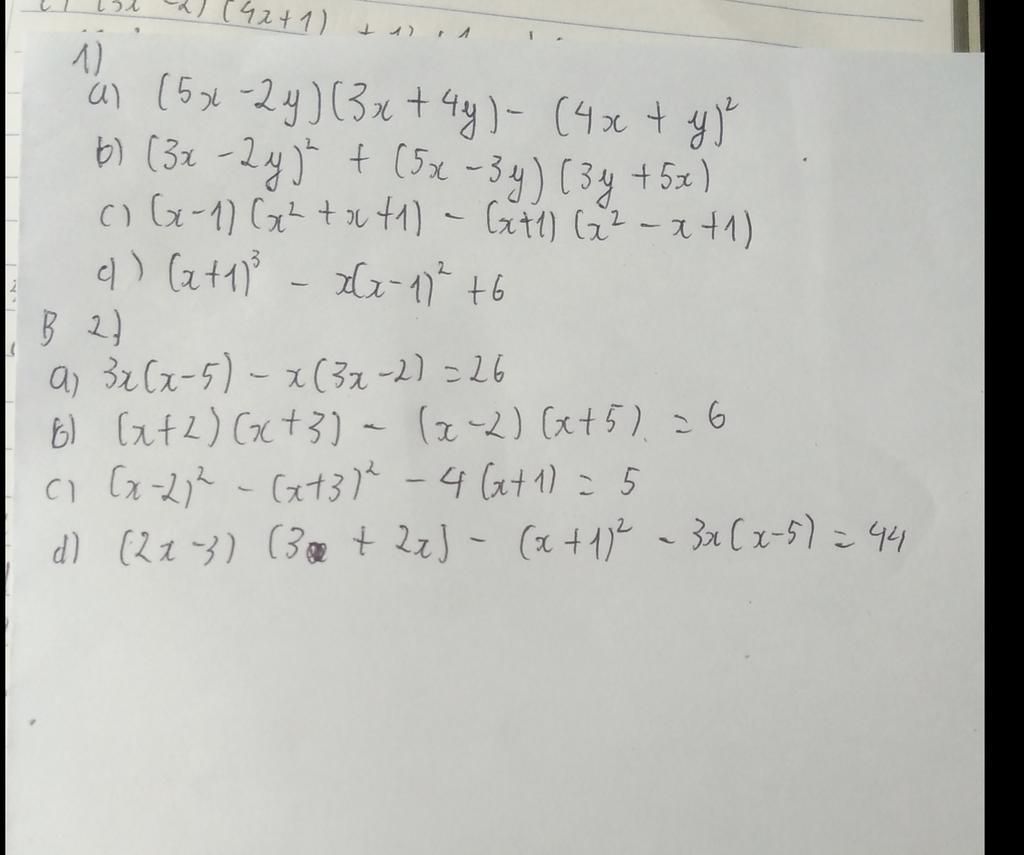 (3x - 2) (4x+1)
1)
a) (5x - 2y)(3x + 4y) - (4x + y)²
b) (3x - 2y)² + (5x - 3y) (3y + 5x)
c) (x-1) (x² + x + 1) - (x+1) (x² - x + 1)
d) (x+1)³ - x(x-1)² + 6
B 2)
a) 3x(x-5) - x(3x-2) = 26
b) (x+2) (x+3) - (x-2) (x+5) = 6
c) (x-2)² - (x+3)² - 4(x+1) = 5
d) (2x-3) (3 + 2x) - (x+1)² - 3x(x-5) = 44